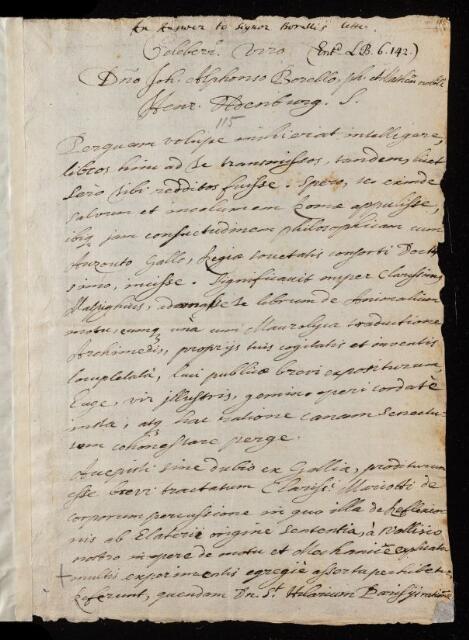 An Answer to Signor Borelli's letter.
Celeberr. Viro (Ent.d LB. 6. 142.)
Dño Joh. Alphonso Borello, ph. et Mathem.
Henr. Oldenburg. S.
115
Perquam volupe mihi erat intelligere,
libros hinc ad Te transmissos, tandem, licet
sero Tibi redditos fuisse. Spero, Te exinde
salvum et incolumem Romæ appulisse,
ibiq jam consuetudinem philosophicam cum
Auzouto Gallo, Regiæ Societatis consorti Doctis
simo, iniisse. Significavit nuper Clarissimus
Malpighius, Te librum de Animalium
motu, eumq unà cum Maurolyci traductione
Archimedis, proprijs tuis cogitatis et inventis
locupletatâ, luci publicæ brevi expositurum.
Euge, vir illustris, gemino operi cordatè
insta, atq hac ratione canam senectu-
tem cohonestare perge.
Accepisti sine dubio ex Gallia, proditurum
esse brevi tractatum Clariss. Mariotti de
corporum percussione in quo illa de Reflexio
nis ab Elaterii origine sententia, à Wallisio
nostro in opere de motu et Mechanicê explicata
multis experimentis egregiè asserta perhibetur.
Referunt, quendam Dn. St Hilarium